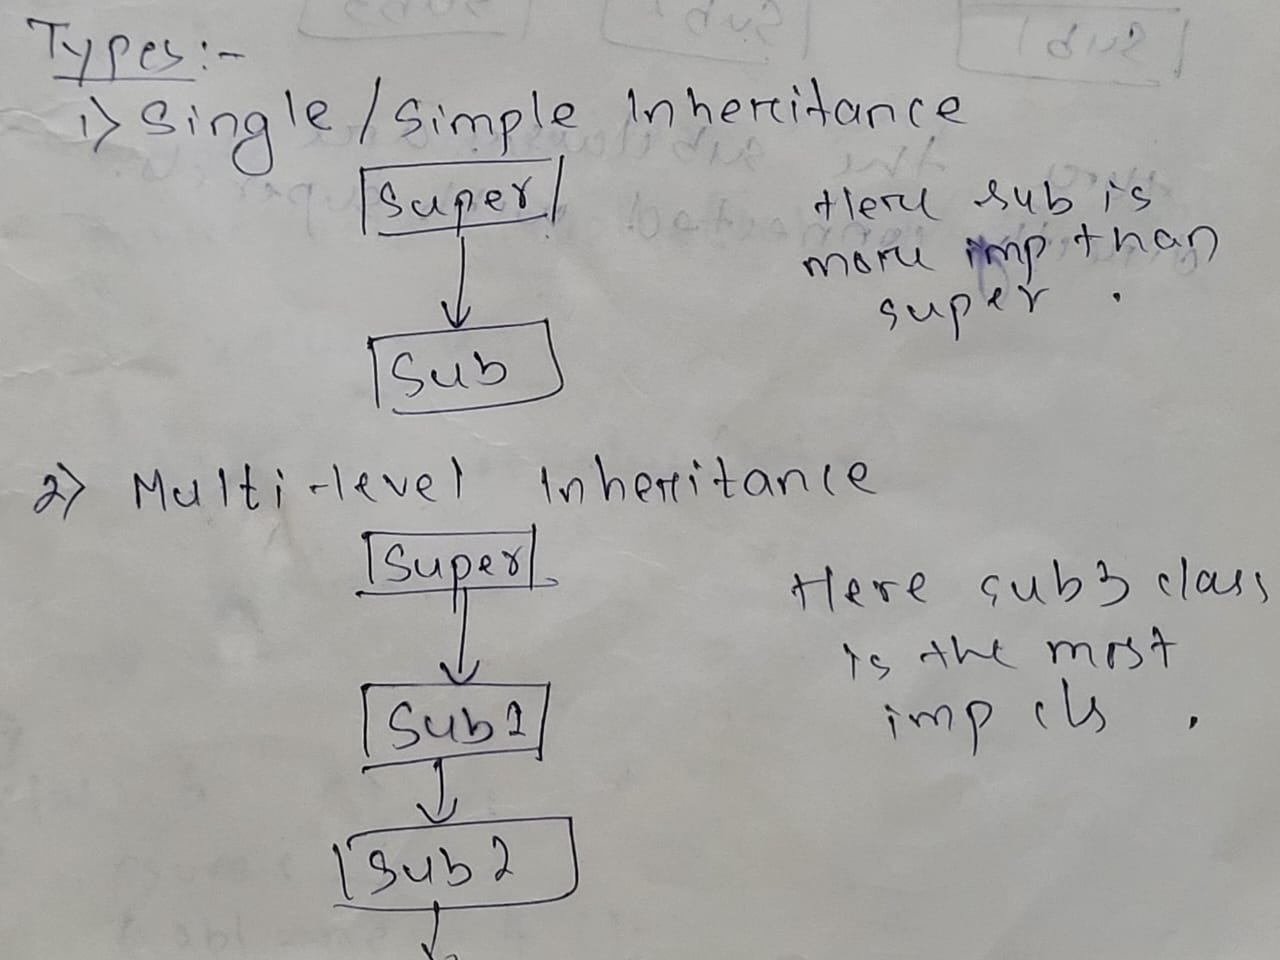 Types:-
1) Single / Simple Inheritance
Super
Here sub is
more imp than
super.
Sub
2) Multi-level Inheritance
Super
Here sub3 class
is the most
imp cls.
Sub1
Sub2